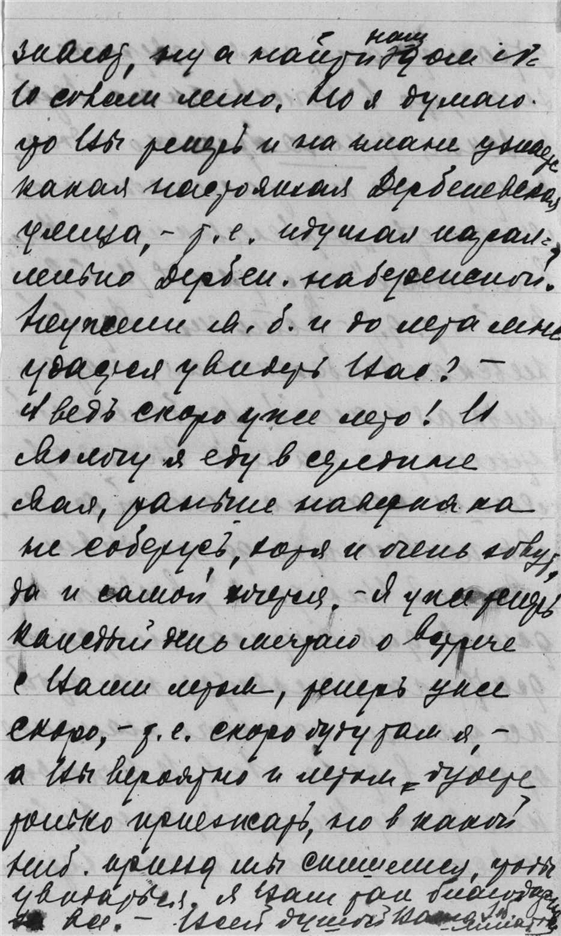 знают, ну а найти наш дом
совсем легко. Но я думаю
что Вы теперь и на плане узнаете
какая настоящая Дербеневская
улица, – т.е. идущая парал=
лельно Дербен. набережной.
Неужели м.б. и до лета мне
удастся увидеть Вас? –
А ведь скоро уже лето! В
Мологу я еду в середине
мая, раньше наверняка
не соберусь, хотя и очень зовут,
да и самой хочется. – Я уже теперь
каждый день мечтаю о встрече
с Вами летом, теперь уже
скоро, – т.е. скоро буду там я, –
а Вы вероятно и летом будете
только приезжать, но в какой
ниб. приезд мы спишемся, чтобы
увидаться. Я Вам так благодарна
за все. – Всей душой Ваша